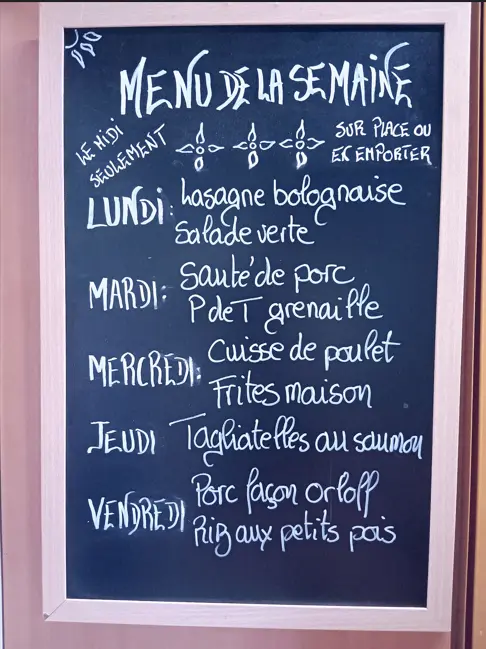 MENU DE LA SEMAINE
LE MIDI
SEULEMENT
SUR PLACE OU
EN EMPORTER
LUNDI: Lasagne bolognaise
Salade verte
MARDI: Sauté de porc
P de T grenaille
MERCREDI: Cuisse de poulet
Frites maison
JEUDI Tagliatelles au saumon
VENDREDI Porc façon orloff
Riz aux petits pois